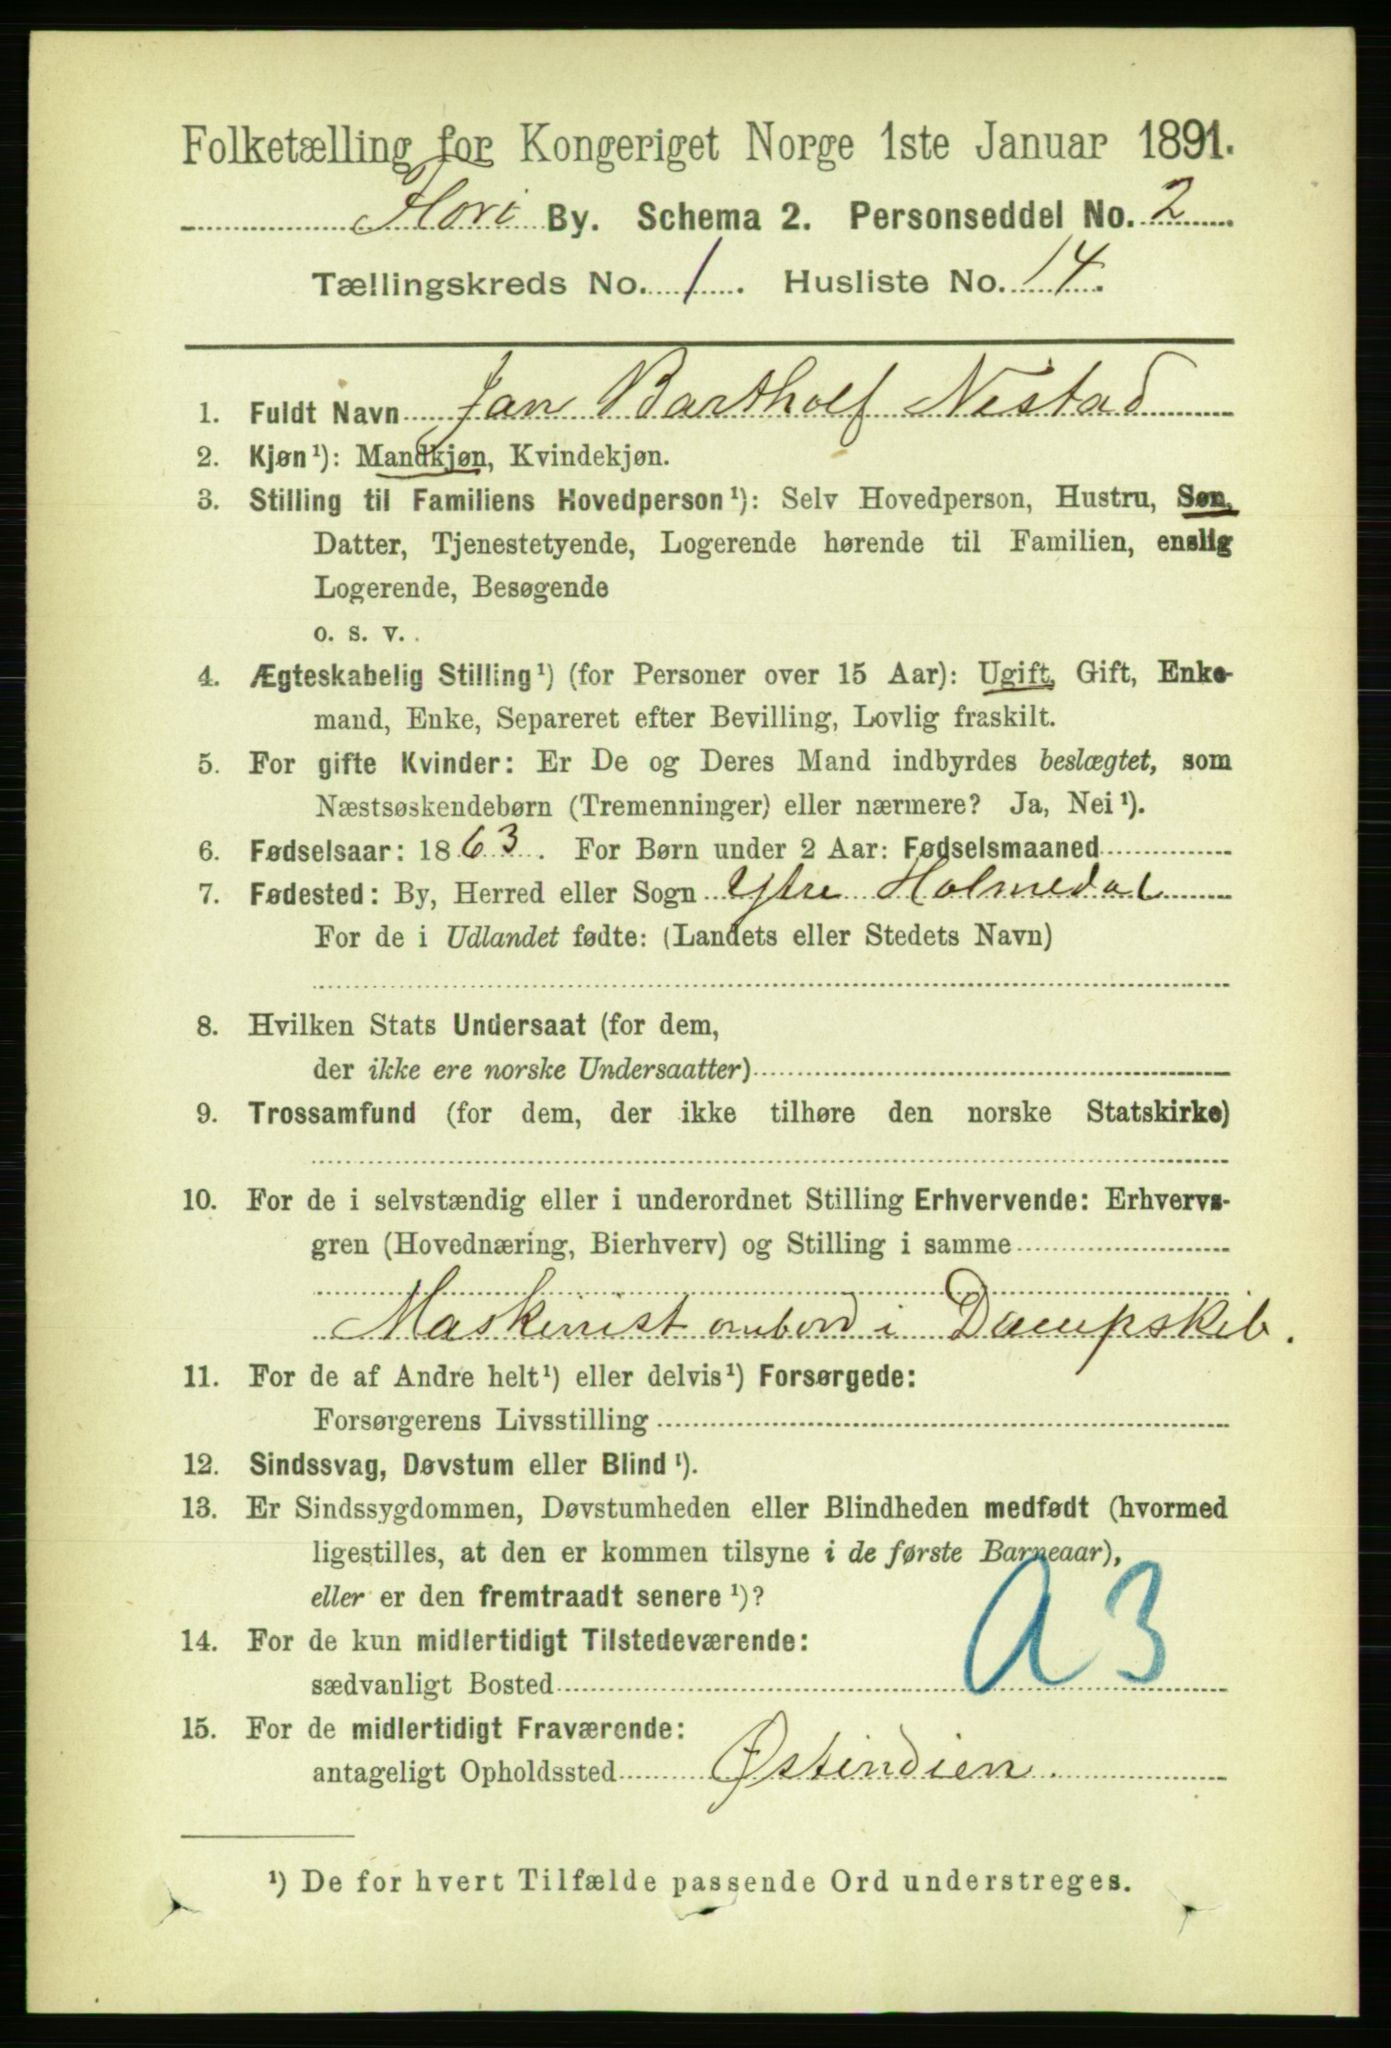 Folketælling for Kongeriget Norge 1ste Januar 1891.
Florø By. Schema 2. Personseddel No. 2
Tællingskreds No. 1. Husliste No. 14.
1. Fuldt Navn Jan Bartholf Nestad
2. Kjøn¹): Mandkjøn, Kvindekjøn.
3. Stilling til Familiens Hovedperson¹): Selv Hovedperson, Hustru, Søn,
Datter, Tjenestetyende, Logerende hørende til Familien, enslig
Logerende, Besøgende
o. s. v.
4. Ægteskabelig Stilling¹) (for Personer over 15 Aar): Ugift, Gift, Enke-
mand, Enke, Separeret efter Bevilling, Lovlig fraskilt.
5. For gifte Kvinder: Er De og Deres Mand indbyrdes beslægtet, som
Næstsøskendebørn (Tremenninger) eller nærmere? Ja, Nei¹).
6. Fødselsaar: 1863. For Børn under 2 Aar: Fødselsmaaned
7. Fødested: By, Herred eller Sogn Ytre Holmedal
For de i Udlandet fødte: (Landets eller Stedets Navn)
8. Hvilken Stats Undersaat (for dem,
der ikke ere norske Undersaatter)
9. Trossamfund (for dem, der ikke tilhøre den norske Statskirke)
10. For de i selvstændig eller i underordnet Stilling Erhvervende: Erhvervs-
gren (Hovednæring, Bierhverv) og Stilling i samme
Maskinist ombord i Dampskib.
11. For de af Andre helt¹) eller delvis¹) Forsørgede:
Forsørgerens Livsstilling
12. Sindssvag, Døvstum eller Blind¹).
13. Er Sindssygdommen, Døvstumheden eller Blindheden medfødt (hvormed
ligestilles, at den er kommen tilsyne i de første Barneaar),
eller er den fremtraadt senere¹)?
a 3
14. For de kun midlertidigt Tilstedeværende:
sædvanligt Bosted
15. For de midlertidigt Fraværende:
antageligt Opholdssted Østindien.
¹) De for hvert Tilfælde passende Ord understreges.